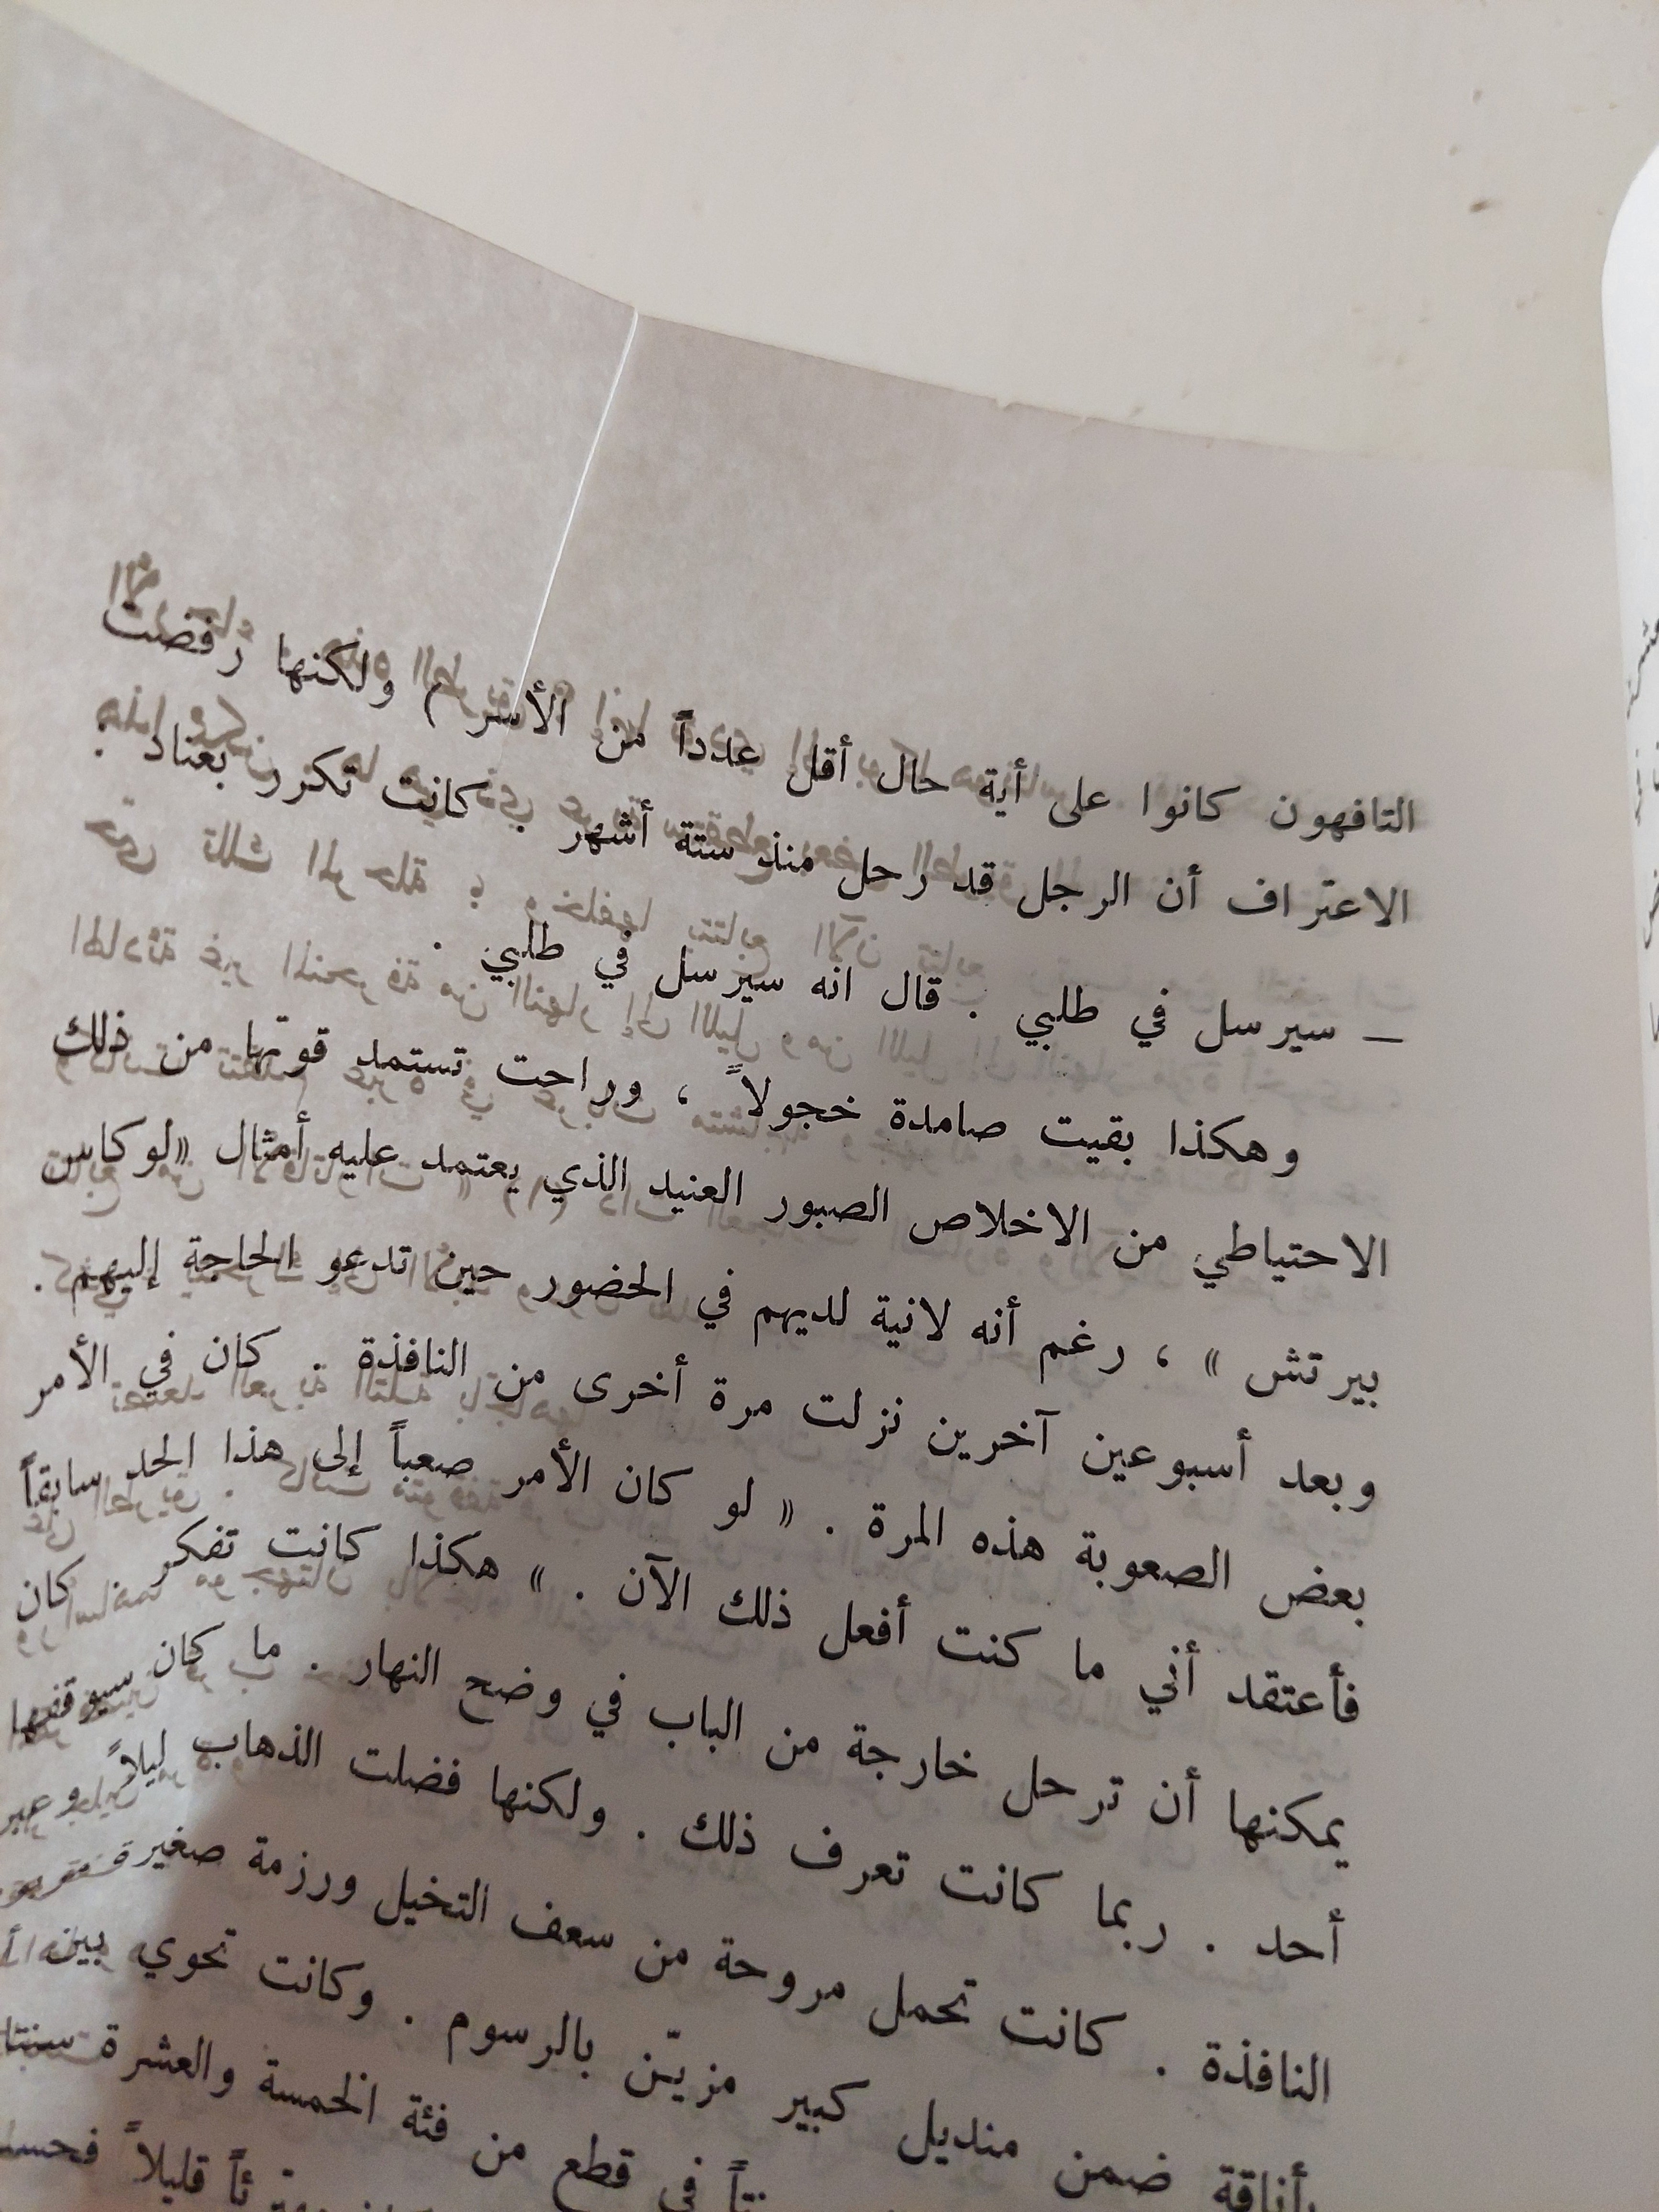 التافهون كانوا على أية حال أقل عدداً من الأسر ) ولكنها رفضت
الاعتراف أن الرجل قد رحل منذ ستة أشهر . كانت تكرر بعناد :
— سيرسل في طلبي . قال انه سيرسل في طلبي .
وهكذا بقيت صامدة خجولاً ، وراحت تستمد قوتها من ذلك
الاحتياطي من الاخلاص الصبور العنيد الذي يعتمد عليه أمثال «لوكاس
بيرتش » ، رغم أنه لانية لديهم في الحضور حين تدعو الحاجة إليهم .
وبعد أسبوعين آخرين نزلت مرة أخرى من النافذة . كان في الأمر
بعض الصعوبة هذه المرة . « لو كان الأمر صعباً إلى هذا الحد سابقاً
فأعتقد أني ما كنت أفعل ذلك الآن . » هكذا كانت تفكر . كان
يمكنها أن ترحل خارجة من الباب في وضح النهار . ما كان سيوقفها
أحد . ربما كانت تعرف ذلك . ولكنها فضلت الذهاب ليلاً وعبر
النافذة . كانت تحمل مروحة من سعف النخيل ورزمة صغيرة
بأناقة ضمن منديل كبير مزيّن بالرسوم . وكانت تحوي بين
في قطع من فئة الخمسة والعشرة
قليلاً